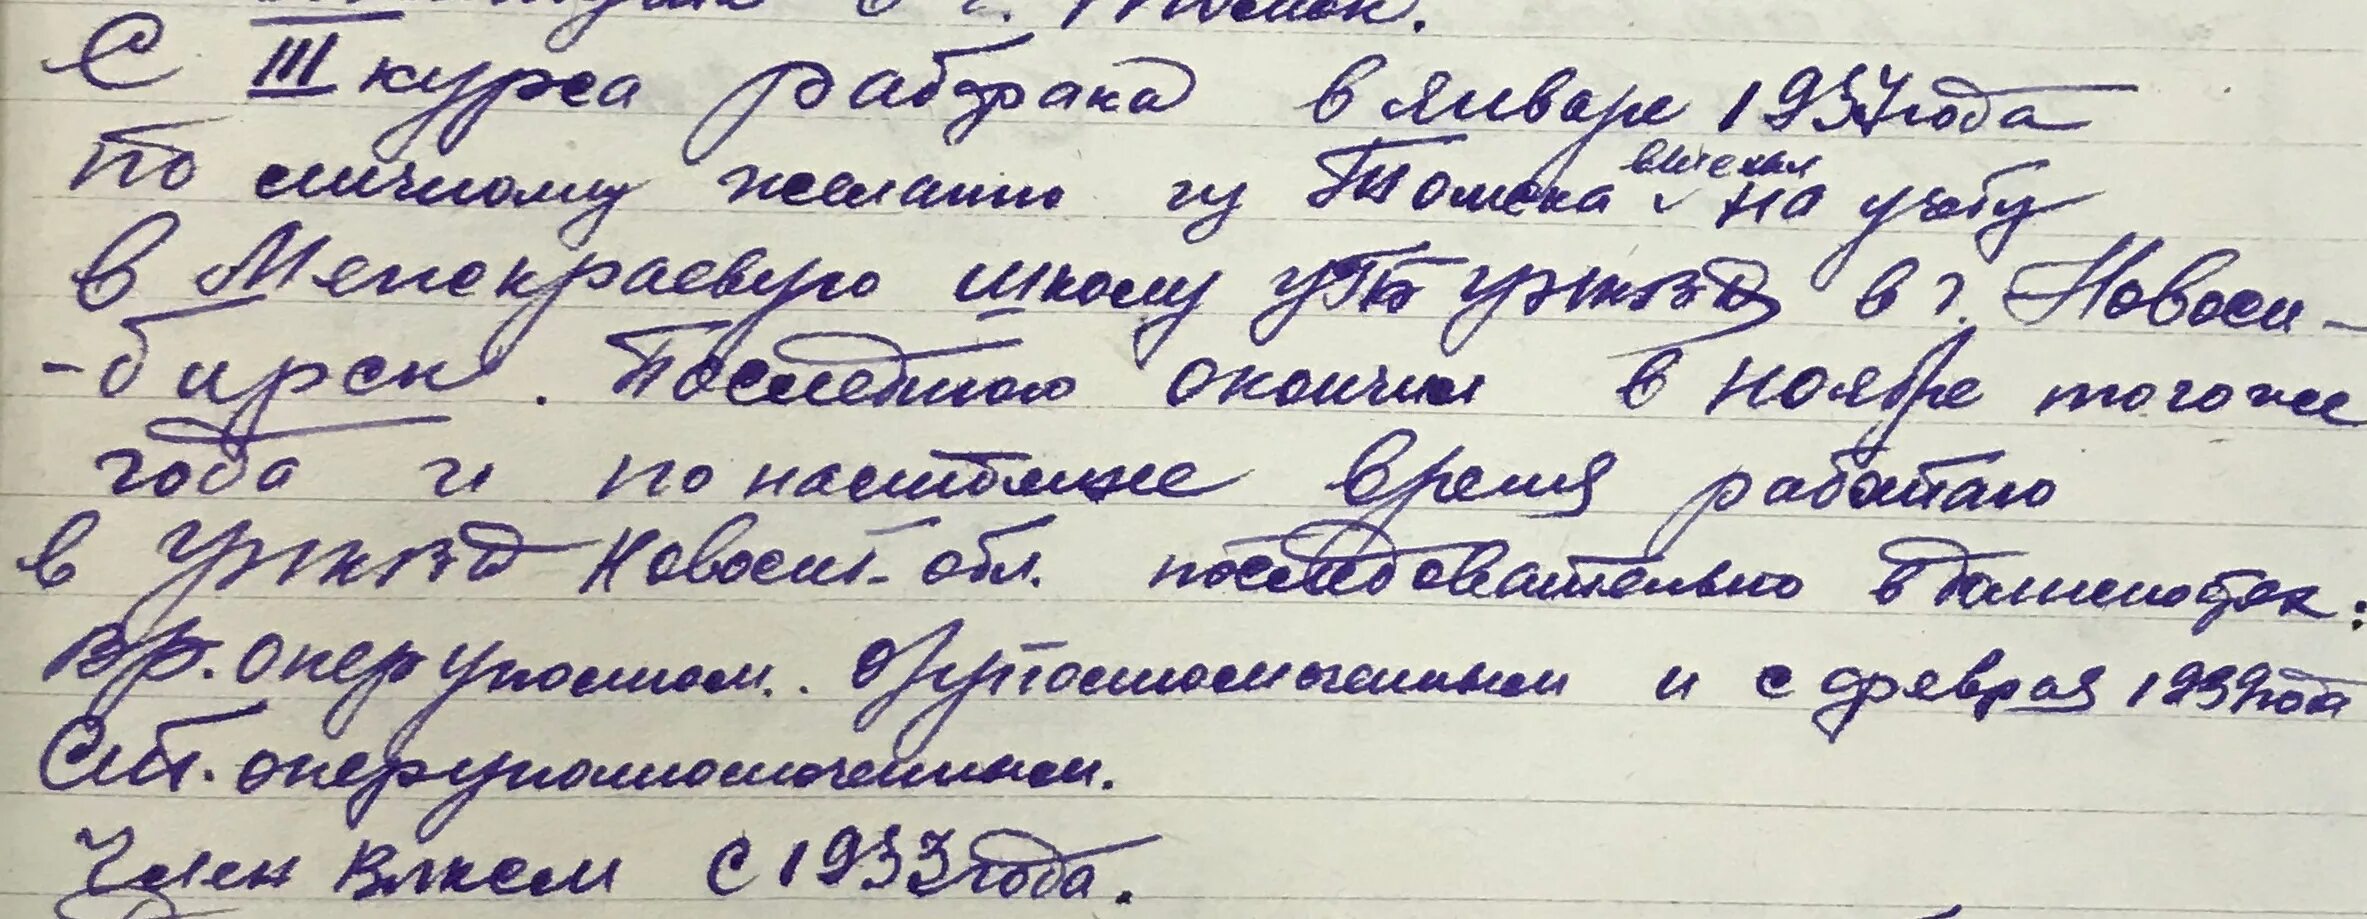 в г. Томск.
С III курса рабфака в январе 1937 года
по личному желанию из Томска выехал на учебу
в Межкраевую школу УГБ УНКВД в г. Новоси-
-бирск. Последнюю окончил в ноябре того же
года и по настоящее время работаю
в УНКВД Новосиб. обл. последовательно в должностях:
Вр. оперуполном. оперуполномоченным и с февраля 1939 года
Ст. оперуполномоченным.
Член ВЛКСМ с 1933 года.